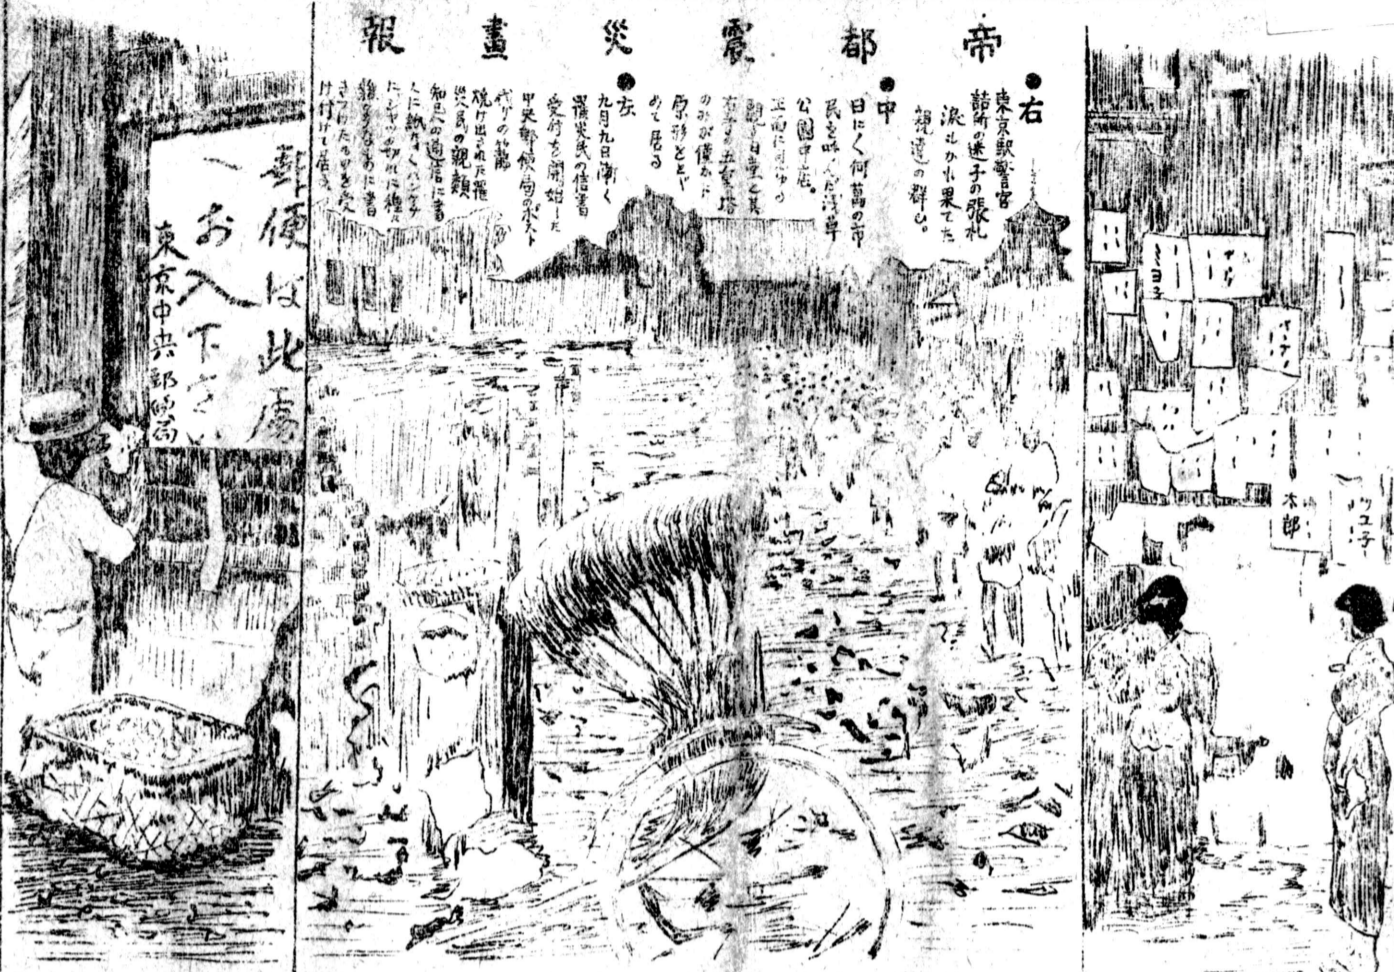 帝都震災畫報
●右
東京駅警官
詰所の迷子の張札
涙もかれ果てた
親達の群れ。
●中
日に〱何萬の市
民を呑んだ浅草
公園中店。
正面に見ゆる
観音堂と其
右手の五重塔
のみが僅かに
原形をとゞ
めて居る
●左
九月九日漸く
罹災民の信書
受付を開始した
中央郵便局のポスト
代りの籠
焼け出された罹
災民の親類
知己への通信に書
くに紙なくハンケチ
にシャツの切れに
きつけたものを受
け付けて居る。
郵便は此處
へお入下さい
東京中央郵便局
ミヨ子
本郎
ツユ子